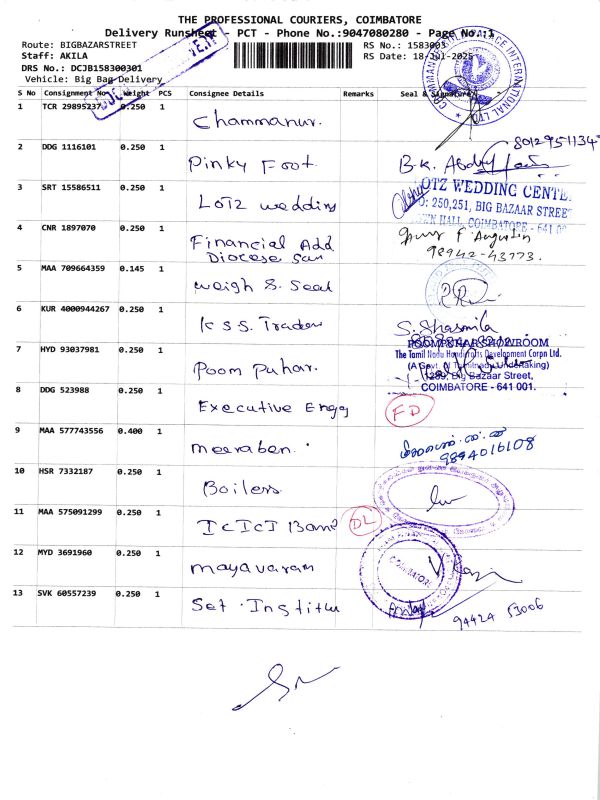 THE PROFESSIONAL COURIERS, COIMBATORE
Delivery Runsheet - PCT - Phone No.:9047080280 - Page No.:1
Route: BIGBAZARSTREET
RS No.: 1583003
Staff: AKILA
RS Date: 18-Jul-2025
DRS No.: DCJB158300301
Vehicle: Big Bag Delivery
S No Consignment No Weight PCS Consignee Details Remarks Seal & Signature
1 TCR 29895237 0.250 1 Chammanur.
2 DDG 1116101 0.250 1 Pinky Foot
8012951134
B.K.
3 SRT 15586511 0.250 1 Lotz wedding
LOTZ WEDDING CENTE
NO: 250,251, BIG BAZAAR STREET
TOWN HALL, COIMBATORE - 641 00
4 CNR 1897070 0.250 1 Financial Add
Diocese San
F. Augustin
98942-43773.
5 MAA 709664359 0.145 1 weigh S. Seal
6 KUR 4000944267 0.250 1 K S S. Traders
S. Sharmila
7 HYD 93037981 0.250 1 Poom Puhar.
POOMPUHAR SHOWROOM
The Tamil Nadu Handicrafts Development Corpn Ltd.
(A Govt. of Tamilnadu Undertaking)
Big Bazaar Street,
COIMBATORE - 641 001.
8 DDG 523988 0.250 1 Executive Engg
FD
9 MAA 577743556 0.400 1 meeraben.
9894016108
10 HSR 7332187 0.250 1 Boilers
11 MAA 575091299 0.250 1 ICICI Bank
DL
12 MYD 3691960 0.250 1 mayavaram
COIMBATORE
13 SVK 60557239 0.250 1 Set. Institu
94424 53006